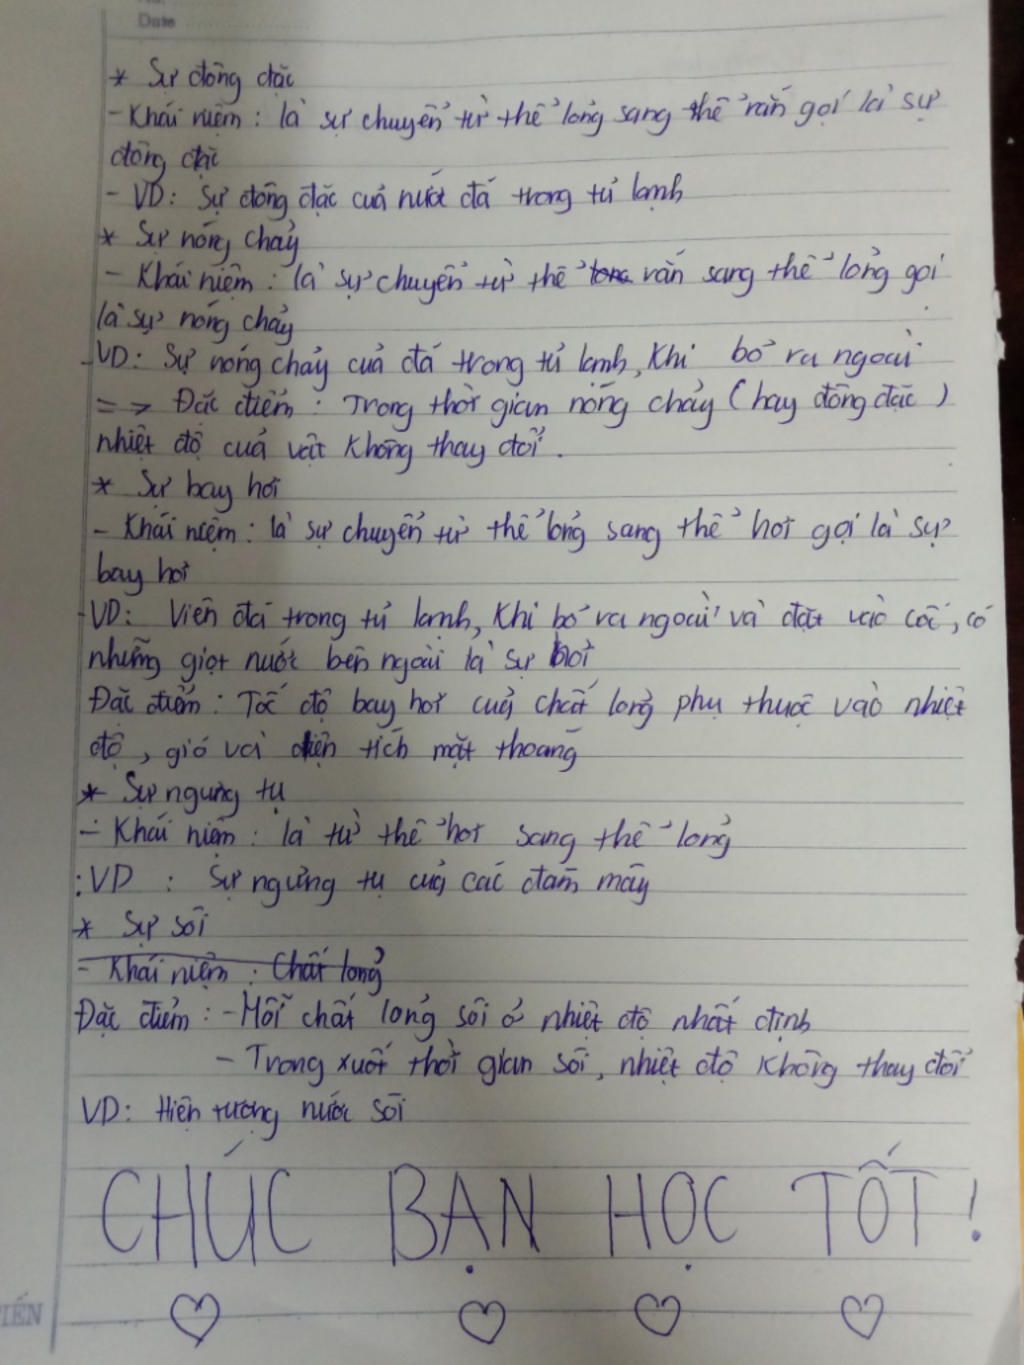 Date
* Sự đông đặc
- Khái niệm : là sự chuyển từ thể lỏng sang thể rắn gọi là sự
đông đặc
- VD : Sự đông đặc cuả nước đá trong tủ lạnh
* Sự nóng chảy
- Khái niệm : là sự chuyển từ thể long rắn sang thể lỏng gọi
là sự nóng chảy
- VD : Sự nóng chảy cuả đá trong tủ lạnh, khi bỏ ra ngoài
= > Đặc điểm : Trong thời gian nóng chảy ( hay đông đặc )
nhiệt độ cuả vật không thay đổi .
* Sự bay hơi
- Khái niệm : là sự chuyển từ thể lỏng sang thể hơi gọi là sự
bay hơi
- VD : Viên đá trong tủ lạnh, khi bỏ ra ngoài và đặt vào cốc, có
những giọt nước bên ngoài là sự hơi
Đặc điểm : Tốc độ bay hơi cuả chất lỏng phụ thuộc vào nhiệt
độ , gió và diện tích mặt thoáng
* Sự ngưng tụ
- Khái niệm : là từ thể hơi sang thể lỏng
: VD : Sự ngưng tụ cuả các đám mây
* Sự sôi
- Khái niệm : Chất lỏng
Đặc điểm : - Mỗi chất lỏng sôi ở nhiệt độ nhất định
- Trong xuốt thời gian sôi, nhiệt độ không thay đổi
VD : Hiện tượng nước sôi
CHÚC BẠN HỌC TỐT !
TIẾN